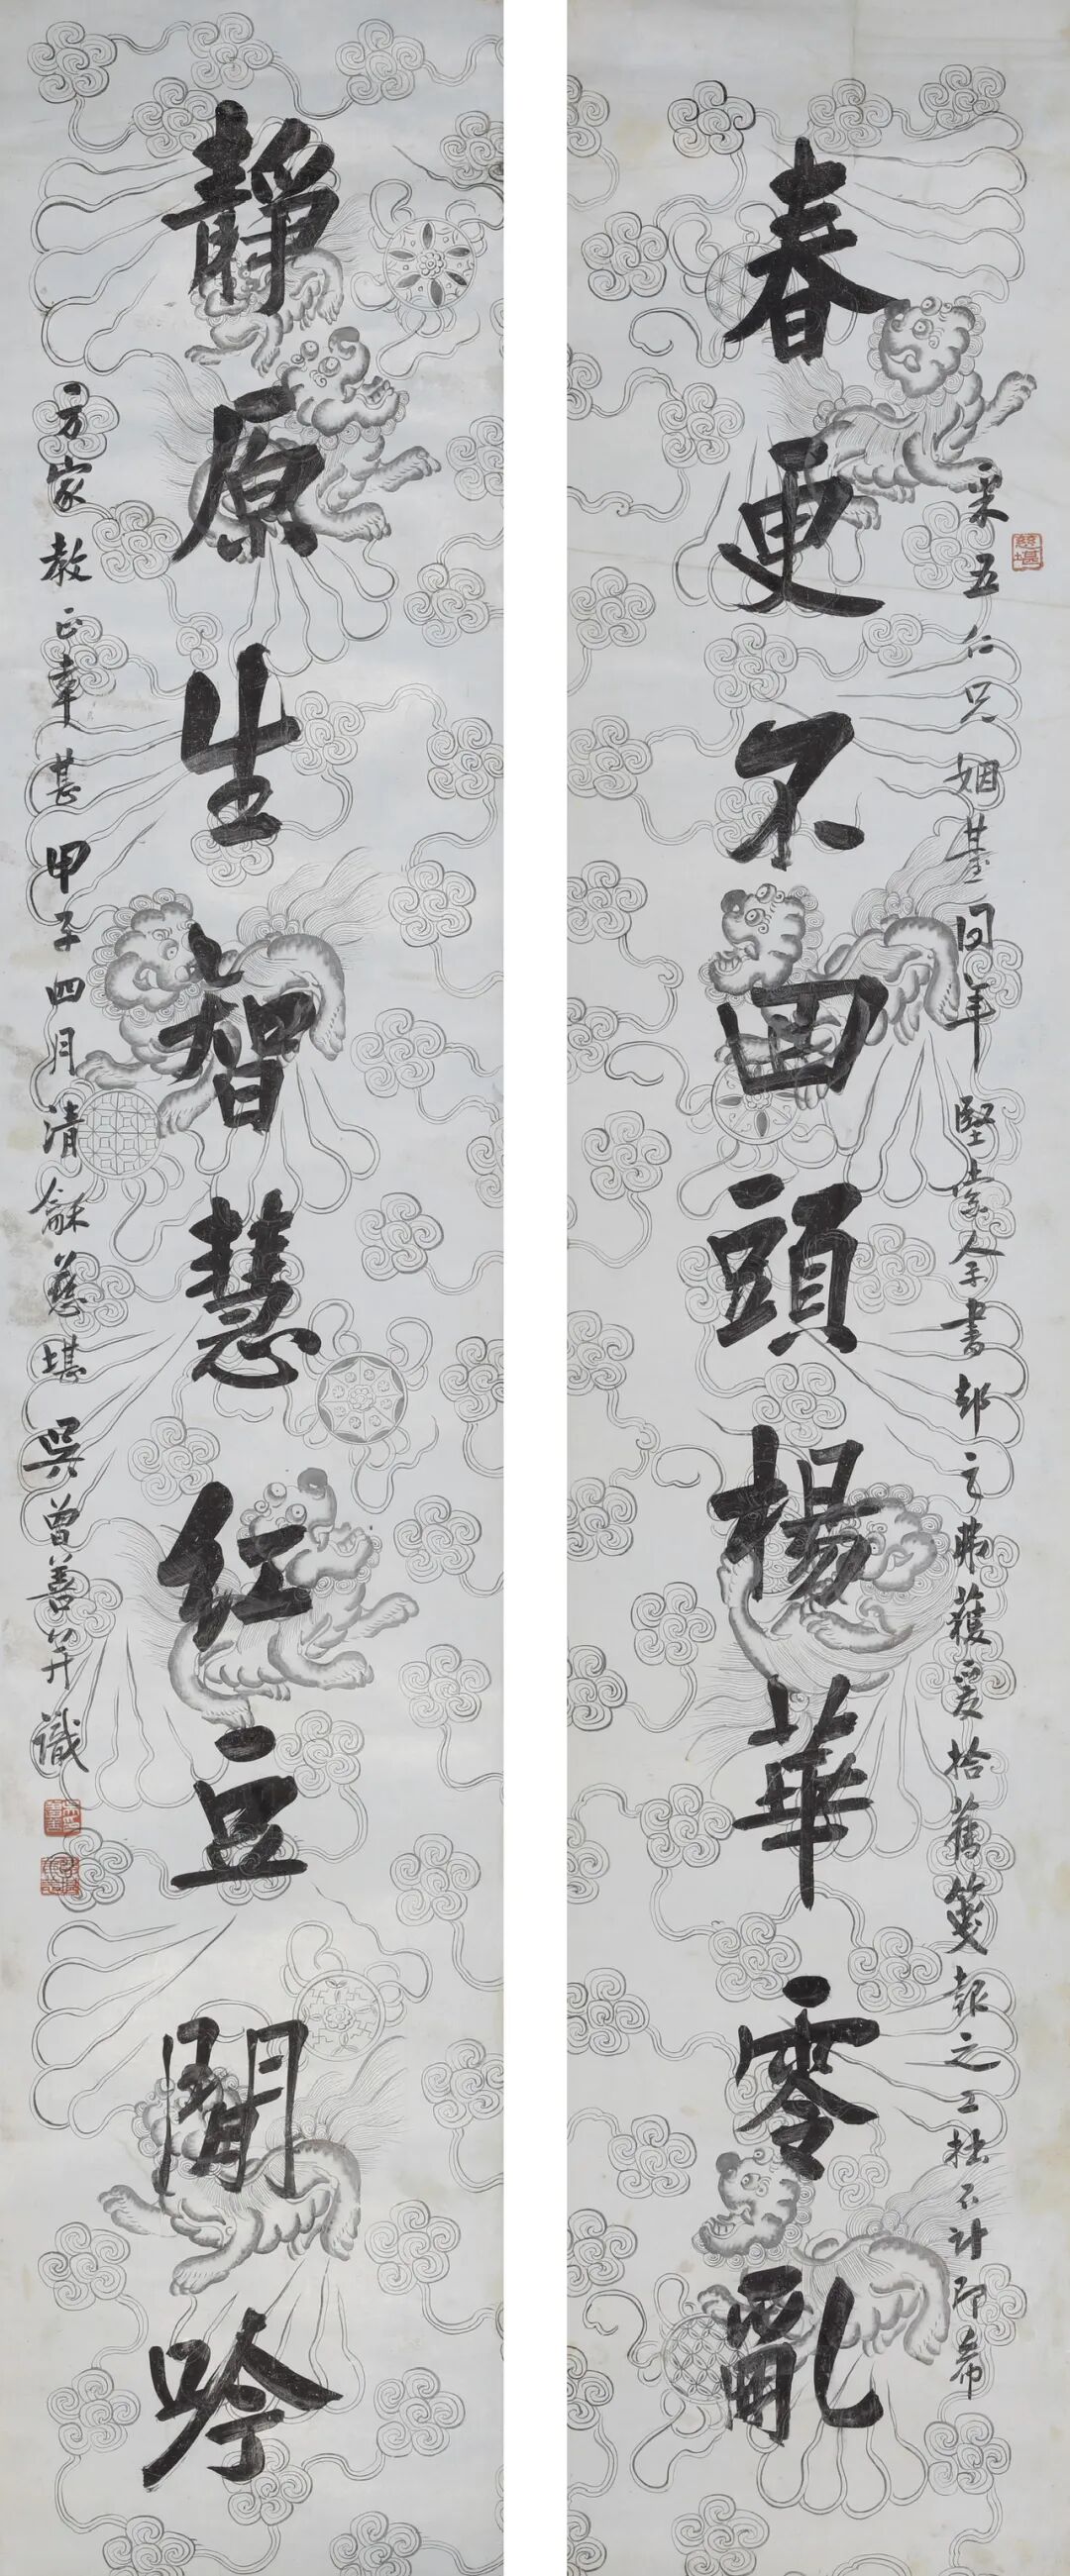 春更不囬頭楊華零亂
靜原生智慧紅豆閒吟
采五仁兄姻臺同年堅索余書却之弗獲爰拾舊箋報之工拙不計即希
方家教正幸甚甲子四月清龢慈堪吳曾善并識
慈堪